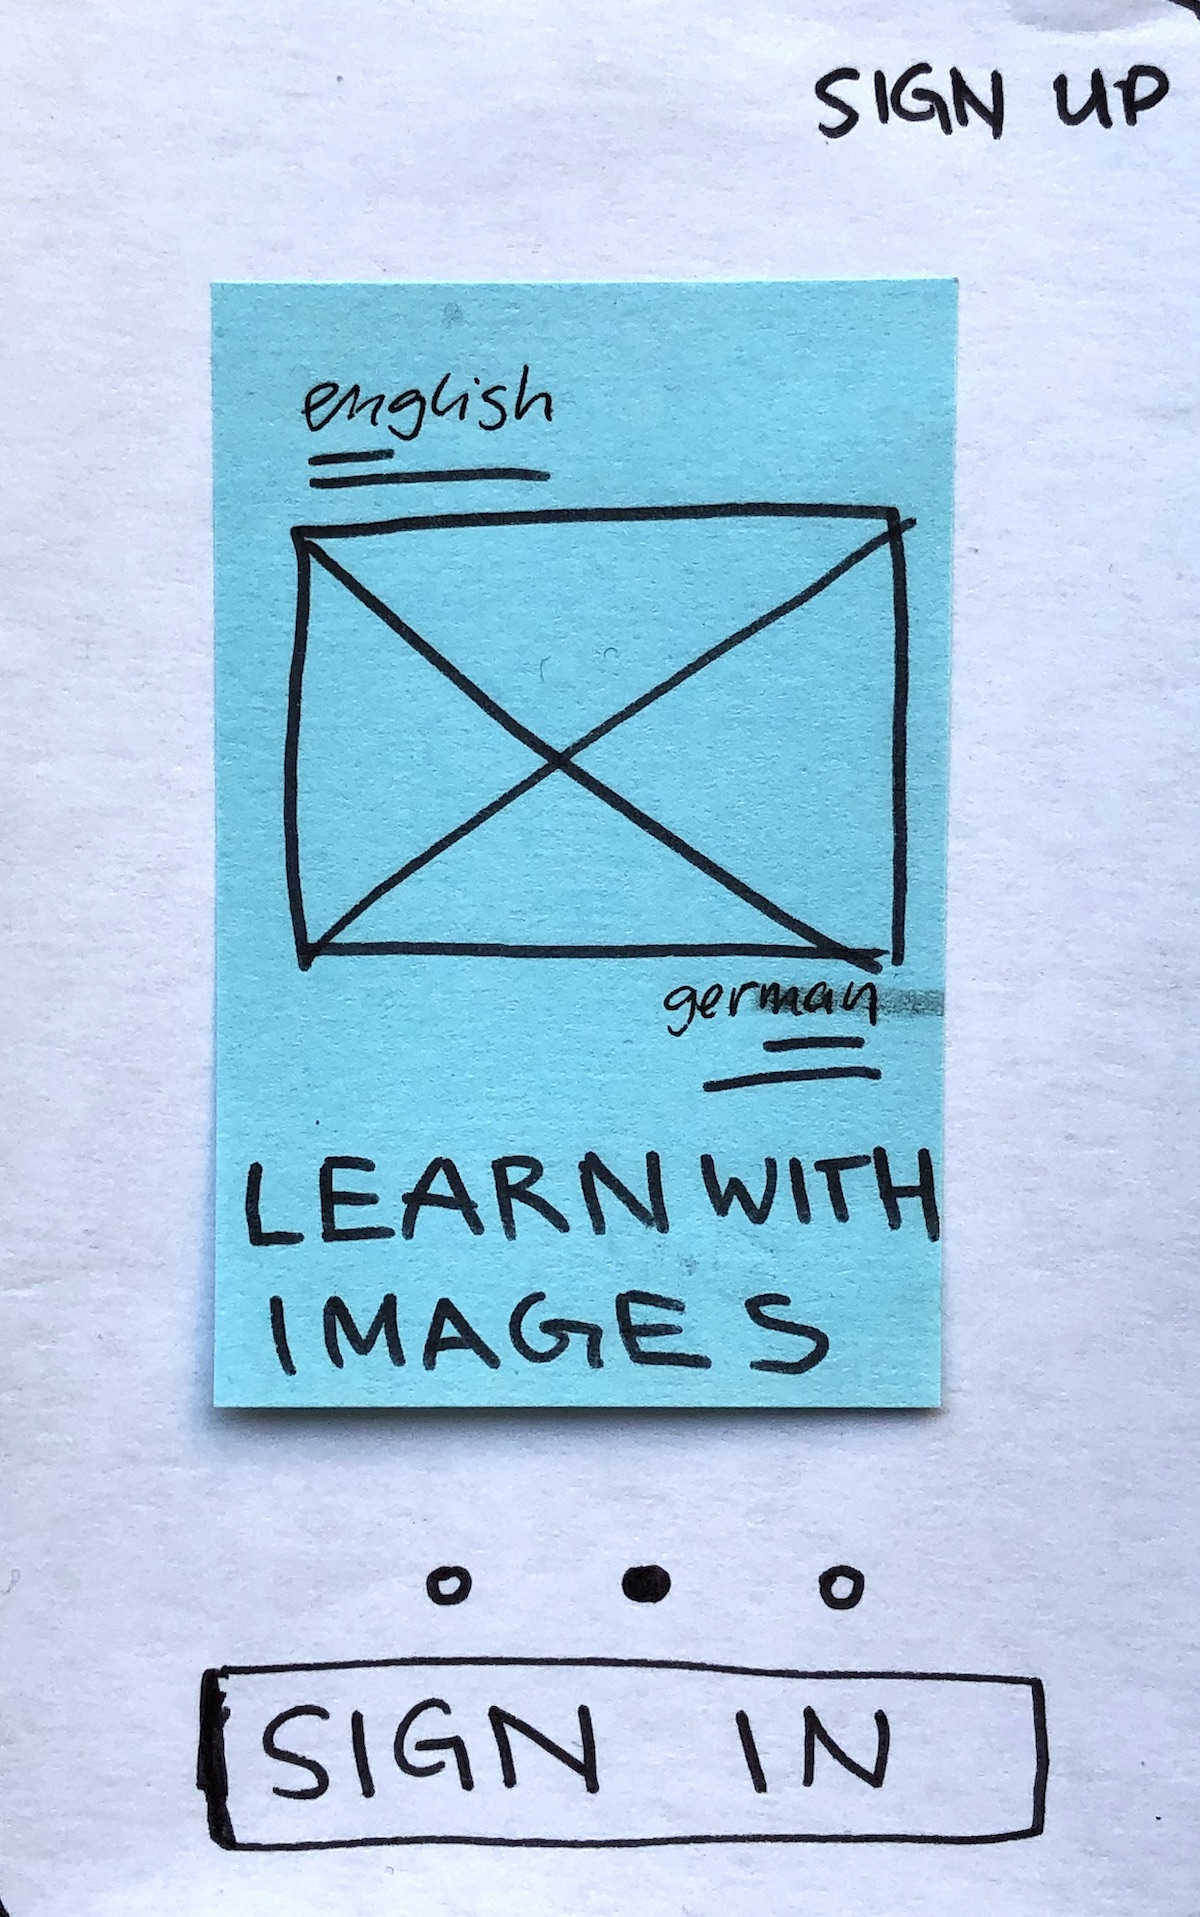 SIGN UP
english
german
LEARN WITH
IMAGES
SIGN IN